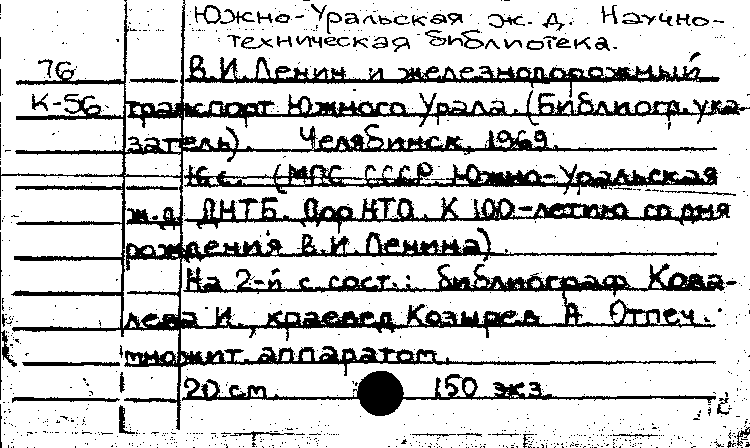 Южно-Уральская ж.д. Научно-
техническая библиотека.
76 В.И.Ленин и железнодорожный
К-56 транспорт Южного Урала. (Библиогр. ука-
затель). Челябинск, 1969.
16 с. (МПС СССР. Южно-Уральская
ж.д. ДНТБ. Дор НТО. К 100-летию со дня
рождения В.И.Ленина).
На 2-й с. сост.: библиограф Кова-
лева И., краевед Козырев А. Отпеч.
множит. аппаратом.
20 см. 150 экз.